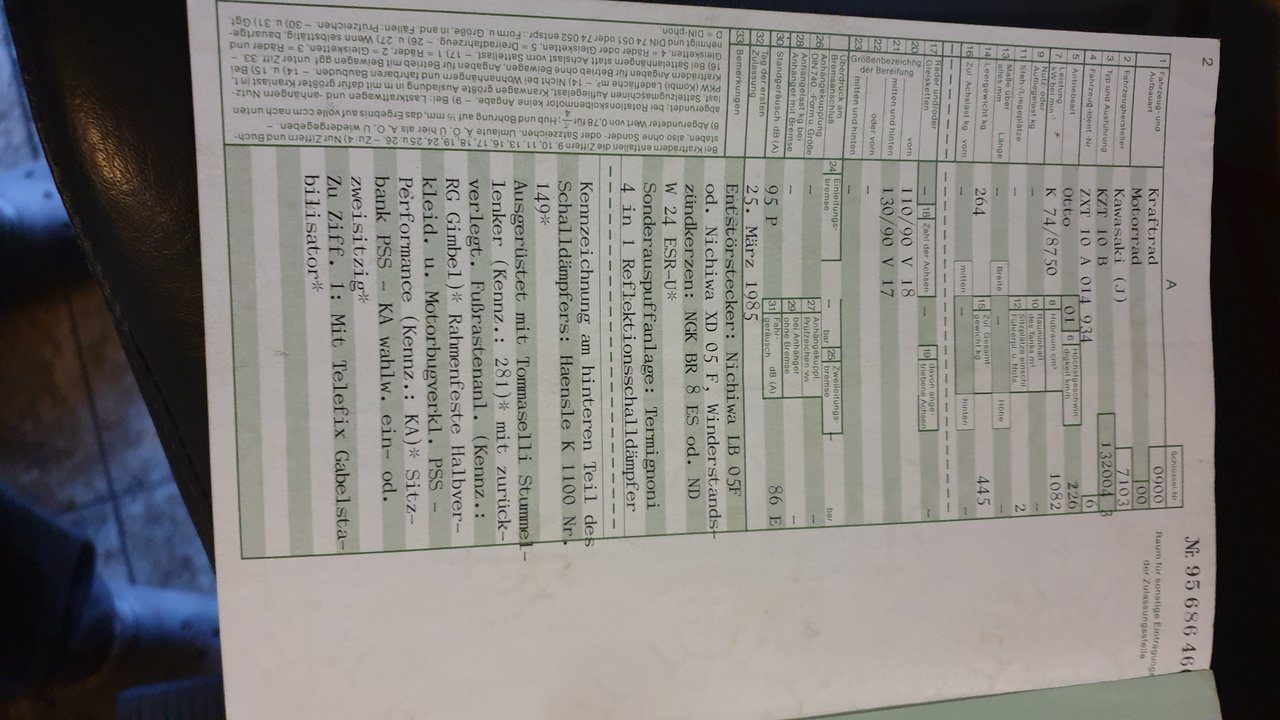 2
Nr. 95 686 46
Raum für sonstige Eintragung
der Zulassungsstelle
A
Schlüssel-Nr.
1 Fahrzeug- und Aufbauart Kraftrad 0900
Motorrad 00
2 Fahrzeughersteller Kawasaki (J) 7103
3 Typ und Ausführung KZT 10 B 132004 3
4 Fahrzeug-Ident.-Nr. ZXT 10 A 014 934 6
5 Antriebsart Otto 01 6 Höchstgeschwin- digkeit km/h 226
7 Leistung kW bei min⁻¹ K 74/8750 8 Hubraum cm³ 1082
9 Nutz- oder Aufliegelast kg – 10 Rauminhalt des Tanks m³ –
11 Steh-/Liegeplätze – 12 Sitzplätze einschl. Führerpl. u. Nots. 2
13 Maße über alles mm Länge – Breite – Höhe –
14 Leergewicht kg 264 15 Zul. Gesamt- gewicht kg 445
16 Zul. Achslast kg vorn – mitten – hinten –
17 Räder und/oder Gleisketten – 18 Zahl der Achsen – 19 davon ange- triebene Achsen –
20 Größenbezeichng. der Bereifung vorn 110/90 V 18
21 mitten und hinten 130/90 V 17
22 oder vorn –
23 mitten und hinten –
Überdruck am Bremsanschluß 24 Einleitungs- bremse – bar 25 Zweileitungs- bremse – bar
26 Anhängekupplung DIN 740.-Form u. Größe – 27 Anhängekuppl. Prüfzeichen –
28 Anhängelast kg bei Anhänger mit Bremse – 29 bei Anhänger ohne Bremse –
30 Standgeräusch dB (A) 95 P 31 Fahr- geräusch dB (A) 86 E
32 Tag der ersten Zulassung 25. März 1985
33 Bemerkungen Entstörstecker: Nichiwa LB 05F
od. Nichiwa XD 05 F, Winderstands-
zündkerzen: NGK BR 8 ES od. ND
W 24 ESR-U*
Sonderauspuffanlage: Termignoni
4 in 1 Reflektionsschalldämpfer
Kennzeichnung am hinteren Teil des
Schalldämpfers: Haensle K 1100 Nr.
149*
Ausgerüstet mit Tommaselli Stummel-
lenker (Kennz.: 281)* mit zurück-
verlegt. Fußrastenanl. (Kennz.:
RG Gimbel)* Rahmenfeste Halbver-
kleid. u. Motorbugverkl. PSS -
Performance (Kennz.: KA)* Sitz-
bank PSS - KA wahlw. ein- od.
zweisitzig*
Zu Ziff. 1: Mit Telefix Gabelsta-
bilisator*
Bei Krafträdern entfallen die Ziffern 9, 10, 11, 13, 16, 17, 18, 19, 24, 25 u. 26 – Zu: 4) Nur Ziffern und Buch-
staben, also ohne Sonder- oder Satzzeichen. Umlaute Ä, Ö, Ü hier als A, O, U wiedergegeben. –
8) Abgerundeter Wert von 0,78 für π/4; Hub und Bohrung auf ½ mm, das Ergebnis auf volle ccm nach unten
abgerundet; bei Rotationskolbenmotor keine Angabe. – 9) Bei: Lastkraftwagen und -anhängern Nutz-
last, Sattelzugmaschinen Aufliegelast, Kranwagen größte Ausladung in m mit dafür größter Kranlast in t,
PKW (Kombi) Ladefläche m² – 14) Nicht bei Wohnanhängern und fahrbaren Baubuden. – 14) u. 15) Bei
Krafträdern Angaben für Betrieb ohne Beiwagen, Angaben für Betrieb mit Beiwagen ggf. unter Ziff. 33. –
16) Bei Sattelanhängern statt Achslast vorn Sattellast. – 17) 1 = Räder, 2 = Gleisketten, 3 = Räder und
Gleisketten, 4 = Räder oder Gleisketten, 5 = Dreiradfahrzeug. – 26) u. 27) Wenn selbsttätig, bauartge-
nehmigt und DIN 74 051 oder 74 052 entspr.: Form u. Größe, in and. Fällen: Prüfzeichen. – 30) u. 31) Ggf.
D = DIN-phon.